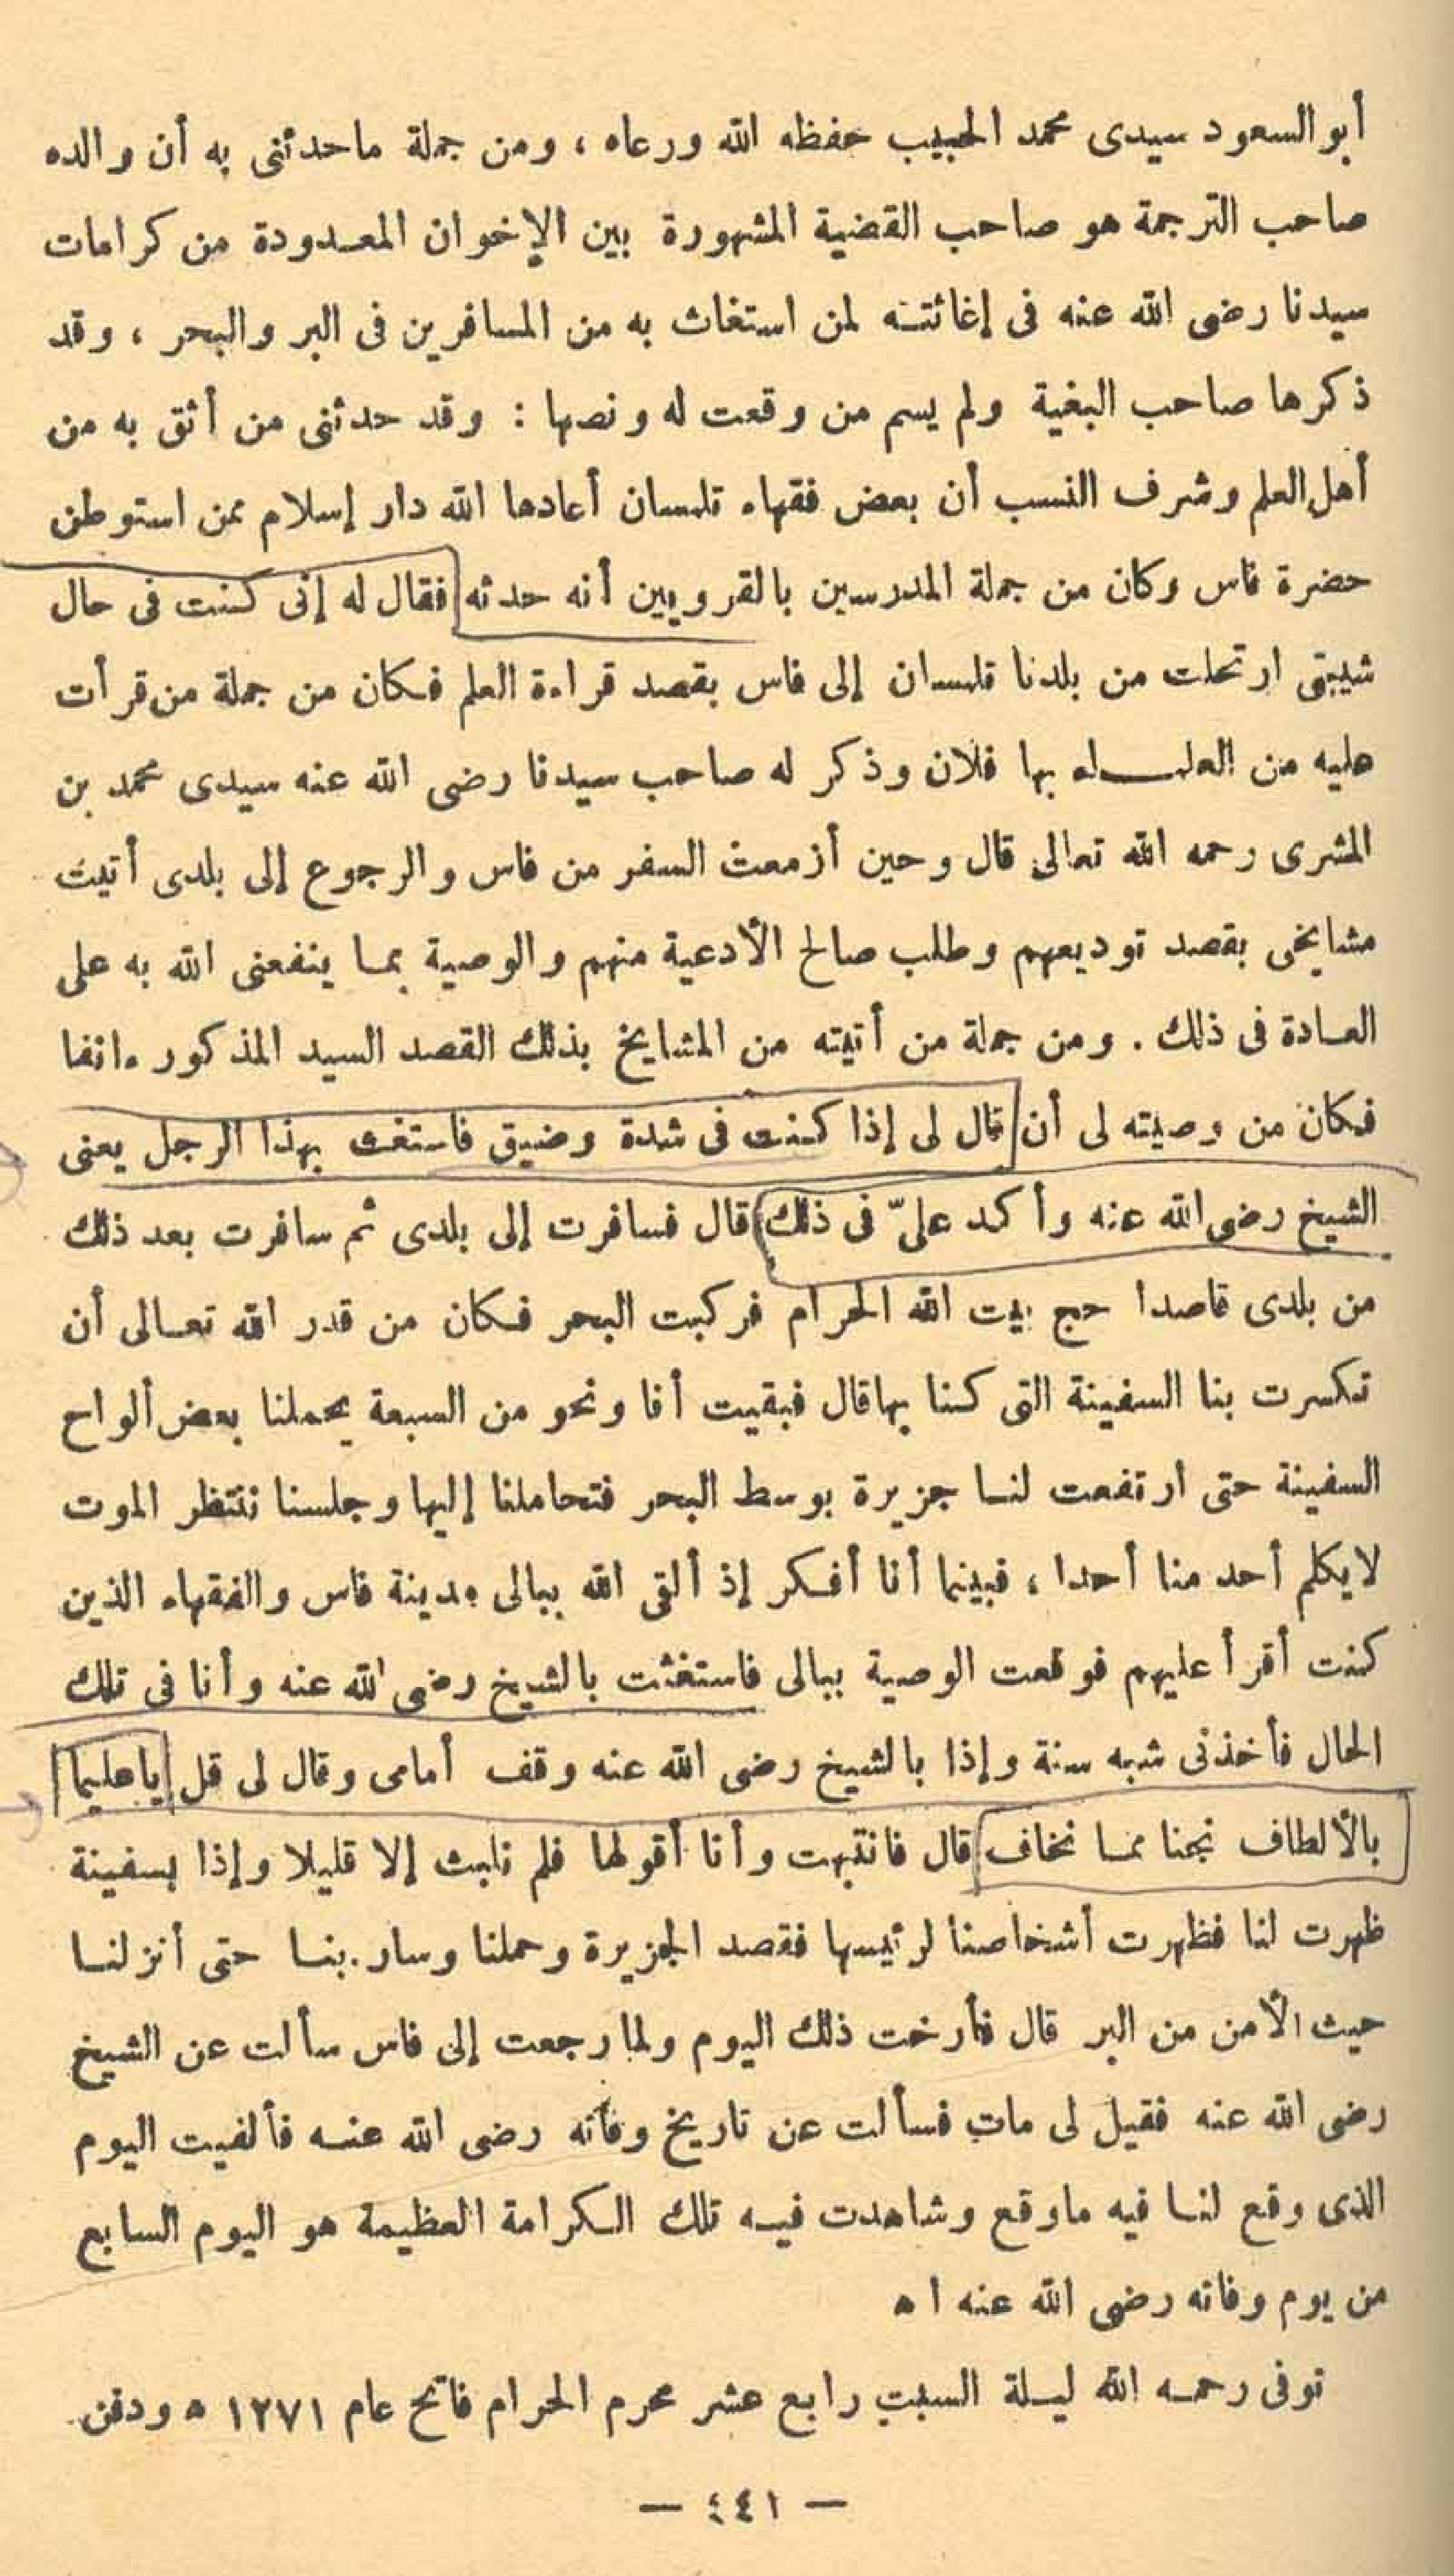 أبو السعود سيدى محمد الحبيب حفظه الله ورعاه ، ومن جملة ماحدثنى به أن والده
صاحب الترجمة هو صاحب القضية المشهورة بين الإخوان المعدودة من كرامات
سيدنا رضى الله عنه فى إغاثته لمن استغاث به من المسافرين فى البر والبحر ، وقد
ذكرها صاحب البغية ولم يسم من وقعت له ونصها : وقد حدثنى من أثق به من
أهل العلم وشرف النسب أن بعض فقهاء تلمسان أعادها الله دار إسلام ممن استوطن
حضرة فاس وكان من جملة المدرسين بالقرويين أنه حدثه فقال له إنى كنت فى حال
شيبتى ارتحلت من بلدنا تلمسان إلى فاس بقصد قراءة العلم فكان من جملة من قرأت
عليه من العلماء بها فلان وذكر له صاحب سيدنا رضى الله عنه سيدى محمد بن
المشرى رحمه الله تعالى قال وحين أزمعت السفر من فاس والرجوع إلى بلدى أتيت
مشايخى بقصد توديعهم وطلب صالح الأدعية منهم والوصية بما ينفعنى الله به على
العادة فى ذلك . ومن جملة من أتيته من المشايخ بذلك القصد السيد المذكور ءانفا
فكان من وصيته لى أن قال لى إذا كنت فى شدة وضيق فاستغث بهذا الرجل يعنى
الشيخ رضى الله عنه وأكد علىّ فى ذلك قال فسافرت إلى بلدى ثم سافرت بعد ذلك
من بلدى قاصدا حج بيت الله الحرام فركبت البحر فكان من قدر الله تعالى أن
تكسرت بنا السفينة التى كنا بها قال فبقيت أنا ونحو من السبعة يحملنا بعض ألواح
السفينة حتى ارتفعت لنا جزيرة بوسط البحر فتحاملنا إليها وجلسنا ننتظر الموت
لايكلم أحد منا أحدا ، فبينما أنا أفكر إذ ألقى الله ببالى مدينة فاس والفقهاء الذين
كنت أقرأ عليهم فوقعت الوصية ببالى فاستغثت بالشيخ رضى الله عنه وأنا فى تلك
الحال فأخذنى شبه سنة وإذا بالشيخ رضى الله عنه وقف أمامى وقال لى قل ياعليما
بالألطاف نجنا مما نخاف قال فانتبهت وأنا أقولها فلم نلبث إلا قليلا وإذا بسفينة
ظهرت لنا فظهرت أشخاصنا لرئيسها فقصد الجزيرة وحملنا وسار بنا حتى أنزلنا
حيث الأمن من البر قال فأرخت ذلك اليوم ولما رجعت إلى فاس سألت عن الشيخ
رضى الله عنه فقيل لى مات فسألت عن تاريخ وفاته رضى الله عنه فألفيت اليوم
الذى وقع لنا فيه ماوقع وشاهدت فيه تلك الكرامة العظيمة هو اليوم السابع
من يوم وفاته رضى الله عنه ا ه
توفى رحمه الله ليلة السبت رابع عشر محرم الحرام فاتح عام ١٢٧١ ه ودفن
— ٤٤١ —